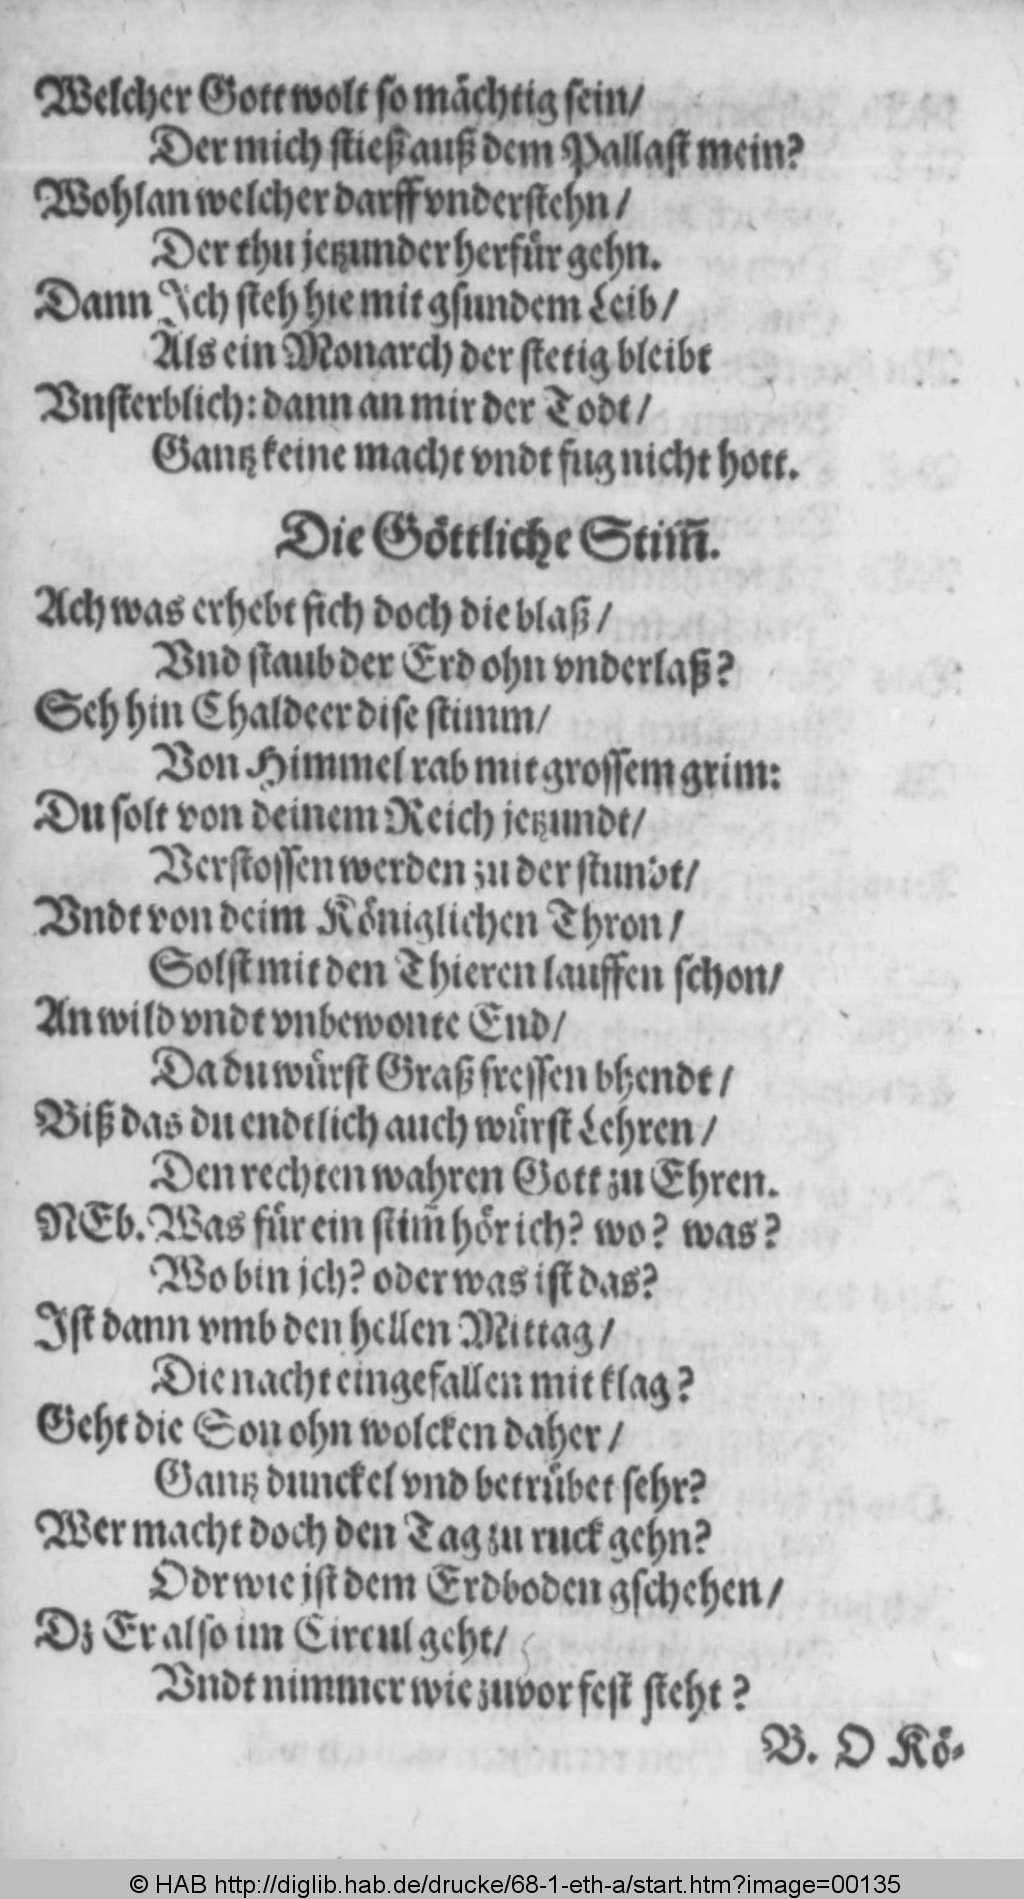 Welcher Gott wolt so mächtig sein/
Der mich stieß auß dem Pallast mein?
Wohlan welcher darff vnderstehn/
Der thu jetzunder herfür gehn.
Dann Ich steh hie mit gsundem Leib/
Als ein Monarch der stetig bleibt
Vnsterblich: dann an mir der Todt/
Gantz keine macht vndt fug nicht hott.
Die Göttliche Stim̄.
Ach was erhebt sich doch die blaß/
Vnd staub der Erd ohn vnderlaß?
Seh hin Chaldeer dise stimm/
Von Himmel rab mit grossem grim:
Du solt von deinem Reich jetzundt/
Verstossen werden zu der stundt/
Vndt von deim Königlichen Thron/
Solst mit den Thieren lauffen schon/
An wild vndt vnbewonte End/
Da du würst Graß fressen bhendt/
Biß das du endtlich auch würst Lehren/
Den rechten wahren Gott zu Ehren.
NEb. Was für ein stim̄ hör ich? wo? was?
Wo bin jch? oder was ist das?
Ist dann vmb den hellen Mittag/
Die nacht eingefallen mit klag?
Geht die Son ohn wolcken daher/
Gantz dunckel vnd betrübet sehr?
Wer macht doch den Tag zu ruck gehn?
Odr wie jst dem Erdboden gschehen/
Dz Er also im Circul geht/
Vndt nimmer wie zuvor fest steht?
B. O Kö-
© HAB http://diglib.hab.de/drucke/68-1-eth-a/start.htm?image=00135